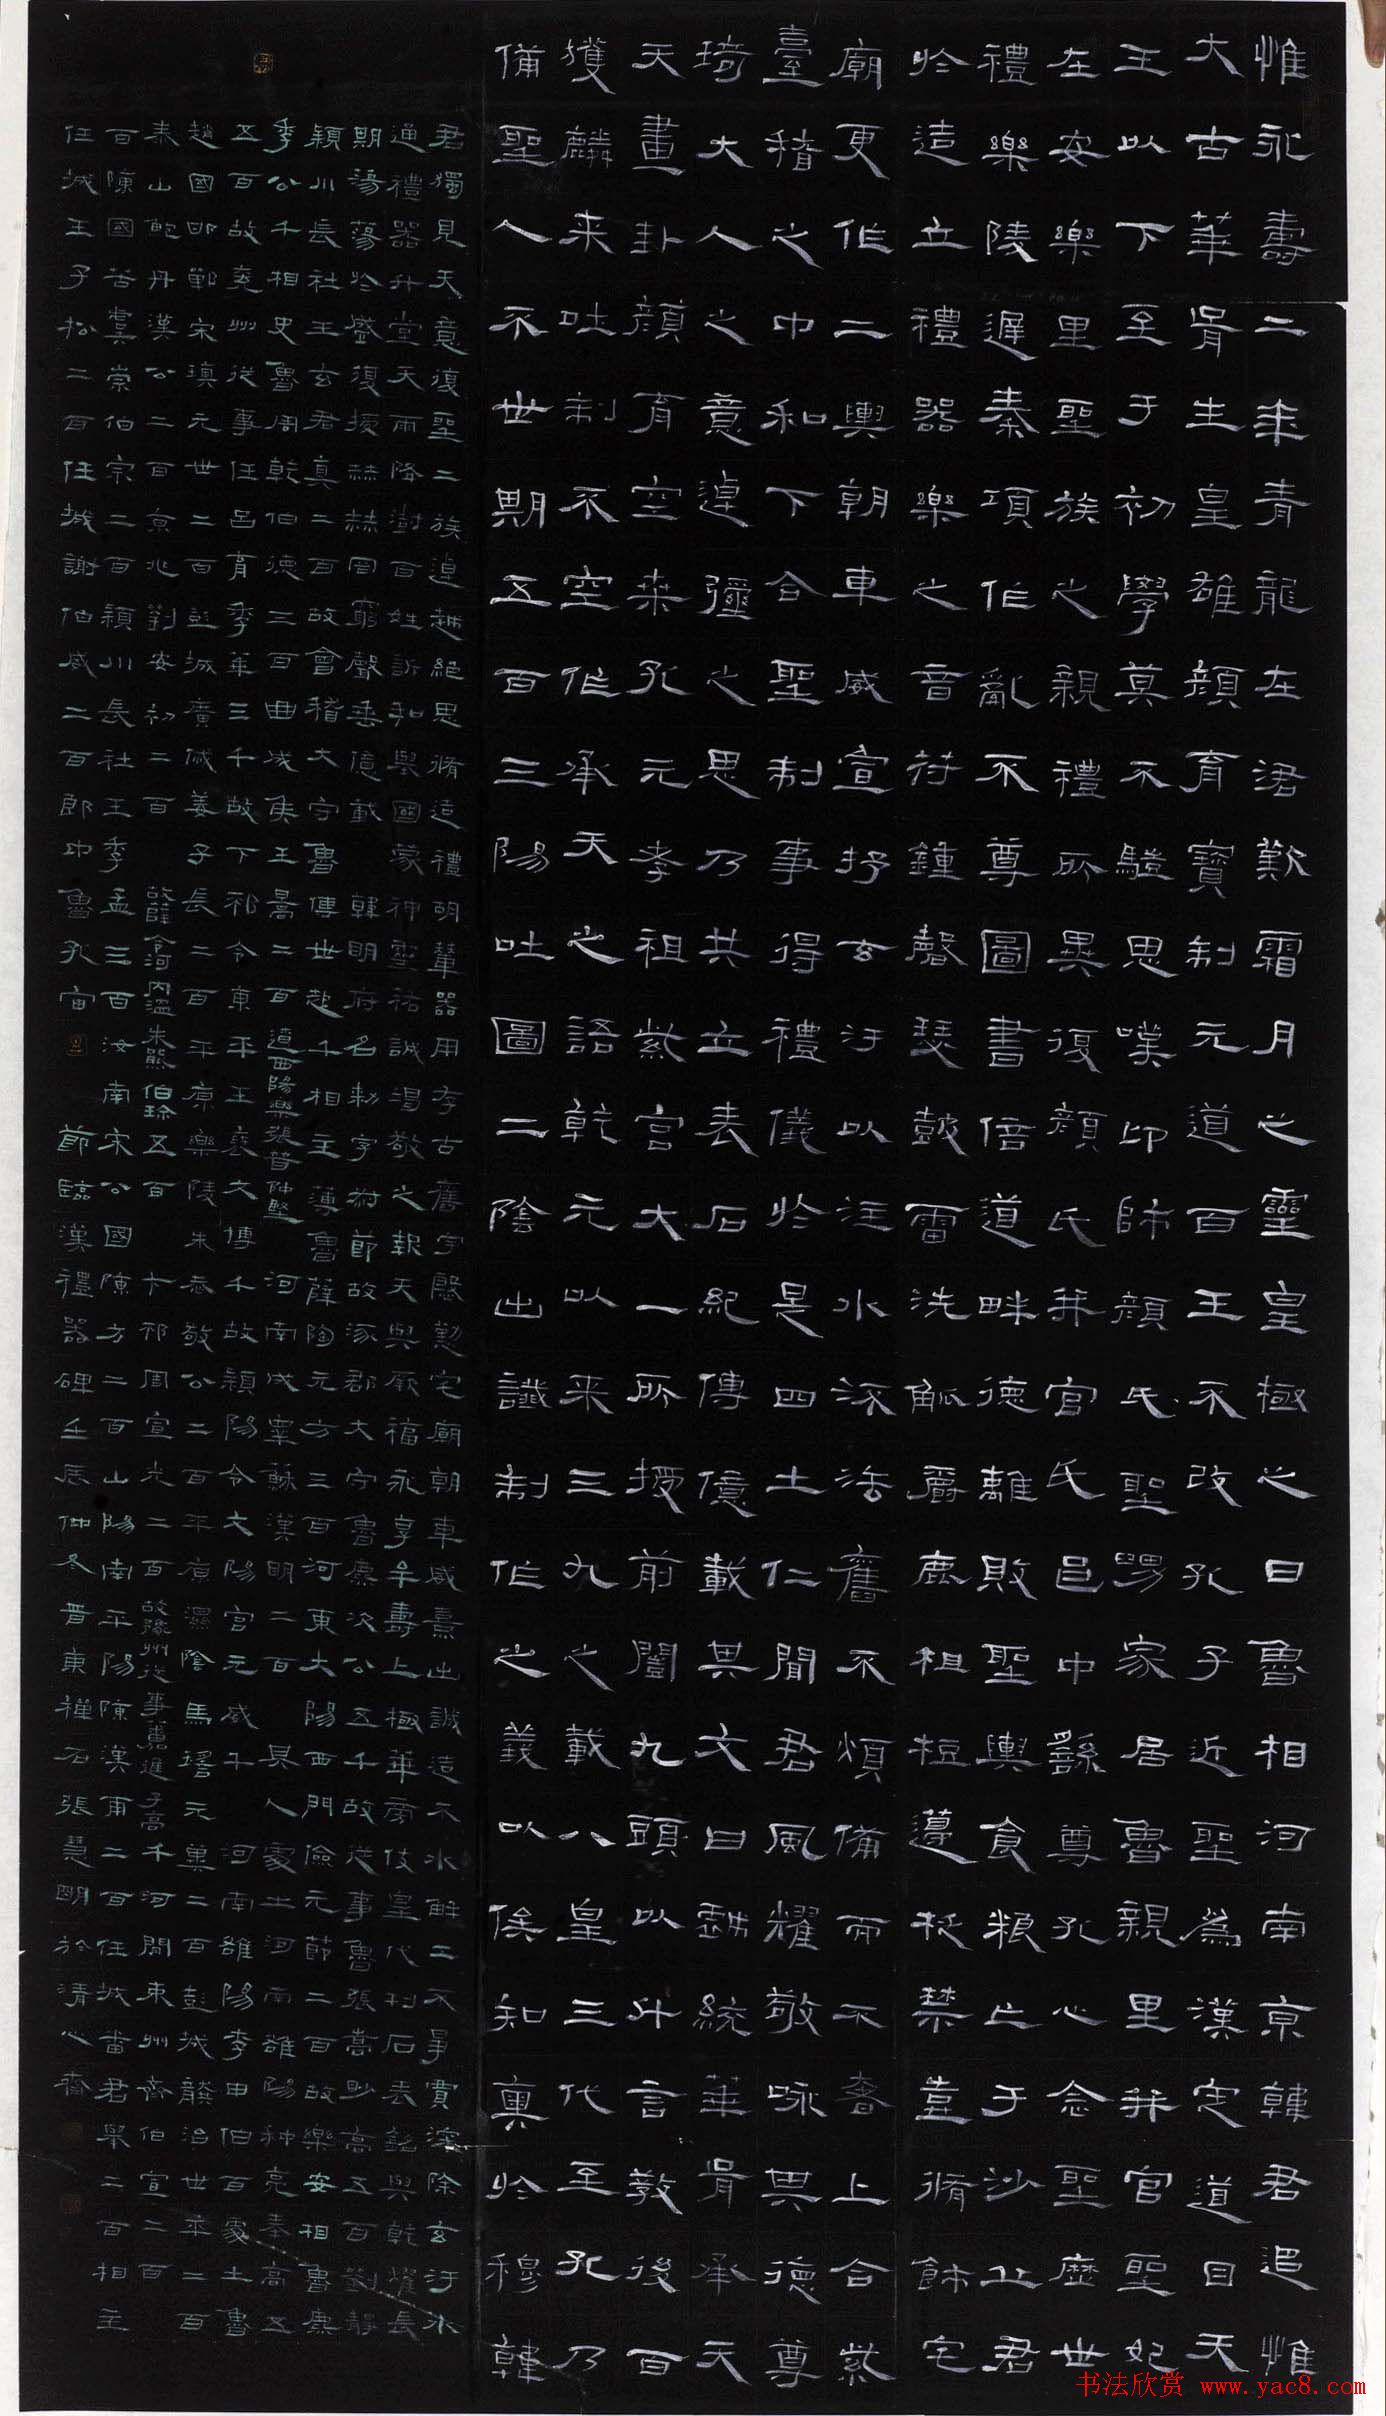 惟永壽二年青龍在涒歎霜月之靈皇極之日魯相河南京韓君追惟
大古華胥生皇雄顏育寶制元道百王不改孔子近聖為漢定道自天
王以下至于初學莫不驥思嘆卬師顏氏聖舅家居魯親里并官聖妃
在安樂里聖族之親禮所異復顏氏并官氏邑中繇尊孔心念聖歷世
禮樂陵遲秦項作亂不尊圖書倍道畔德離敗聖輿食粮亡于沙丘君
於造立禮器樂之音符鍾磬瑟鼓雷洗觚爵鹿柤梪籩柉禁壺脩飾宅
廟更作二輿朝車威宣抒玄汙以注水流法舊不煩備而不奢上合紫
臺稽之中和下合聖制事得禮儀於是四土仁聞君風耀敬咏其德尊
琦大人之意逴彌之思乃共立表石紀傳億載其文曰戲統華胥承天
天畫卦顏育空桑孔元孝祖紫宮大一所授前闓九頭以什言教後百
獲麟来吐制不空作承天之語乾元以来三九之載八皇三代至孔乃
備聖人不世期五百三陽吐圖二陰出讖制作之義以俟知奧於穆韓
君獨見天意復聖二族逴越絕思脩造禮胡輦器用存古舊宇慇懃宅廟朝車威熹出誠造不水解工不爭賈深除玄汙水
通禮器升堂天雨降澍百姓訢和舉國蒙神靈祐誠竭敬之報天與厥福永享牟壽上極華旁伎皇代刊石表銘與乾燿長
期蕩蕩於盛復授赫赫罔窮聲垂億載 韓明府名勑字叔節故涿郡大守魯麃次公五千故從事魯張嵩眇高五百劉靜
潁川長社王玄君真二百故會稽大守魯傅世起千相主薄魯薛陶元方三百河東大陽西門儉元節二百故樂安相魯麃
季公千相史魯周乾伯德三百曲成侯王暠二百遼西陽樂張普仲堅 河南成睪蘇漢明二百 其人處士河南雒陽种亮奉高五
五百故兗州從事任呂育季華三千故下邳令東平王褒文博千故潁陽令文陽宮元威千 河南雒陽李申伯百處士魯
趙國邯鄲宋瑱元世二百彭城廣戚姜子長二百平原樂陵朱恭敬公二百平原濕陰馬瑤元冀二百彭城龔治世平二百
泰山鮑丹漢公二百京兆劉安初二百 故薛令河內溫朱熊伯珍五百 下邳周宣光二百故豫州從事蕃進子高千河間東州齊伯宣二百
百陳國苦虞崇伯宗二百潁川長社王季孟三百汝南宋公國陳方二百山陽南平陽陳漢甫二百任城番君舉二百相主
任城王子松二百任城謝伯威二百郎中魯孔宙 節臨漢禮器碑壬辰仲冬晉東禪石張慧明於清心齋
书法欣赏 www.yac8.com